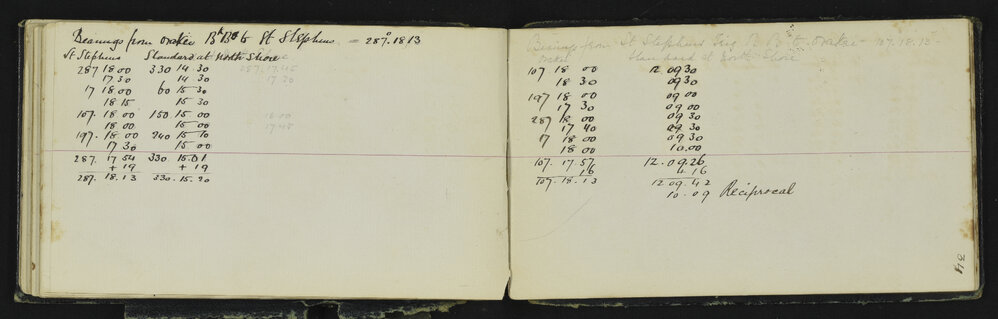 Bearings from Orakei Bk Bo to St Stephens = 287°.18'13
St Stephens Standard at North Shore
287 18 00 330 14 30 287.17.45
17 30 14 30 17 30
17 18 00 60 15 30
18 15 15 30
107. 18 00 150 15 00 18 00
18 00 15 00 17.45
197. 18 00 240 15 10
17 30 15 00
287. 17 54 330. 15.01
+ 19 + 19
287. 18.13 330. 15.20
Bearings from St Stephens Trig B Bo to Orakei - 107.18.13
Orakei Standard at North Shore
107 18 00 12 09 30
18 30 09 30
197 18 00 09 00
17 30 09 00
287 18 00 09 30
17 40 09 30
17 18 00 09 30
18 00 10.00
107. 17.57 12.09.26
16 + 16
107.18.13 12 09.42
10.09 Reciprocal
34